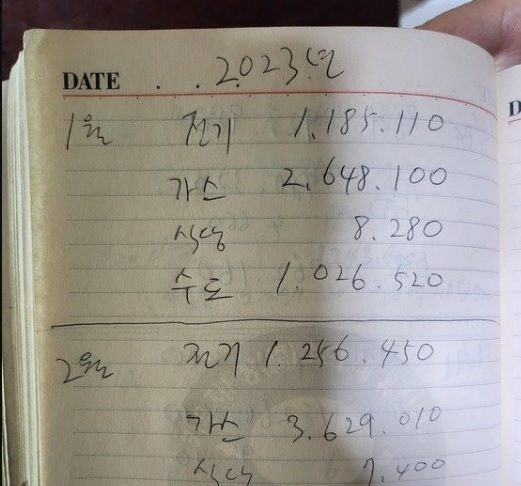 DATE . . 2023년
1월 전기 1.185.110
가스 2.648.100
식당 8.280
수도 1.026.520
2월 전기 1.256.450
가스 3.629.010
식당 7.400
D